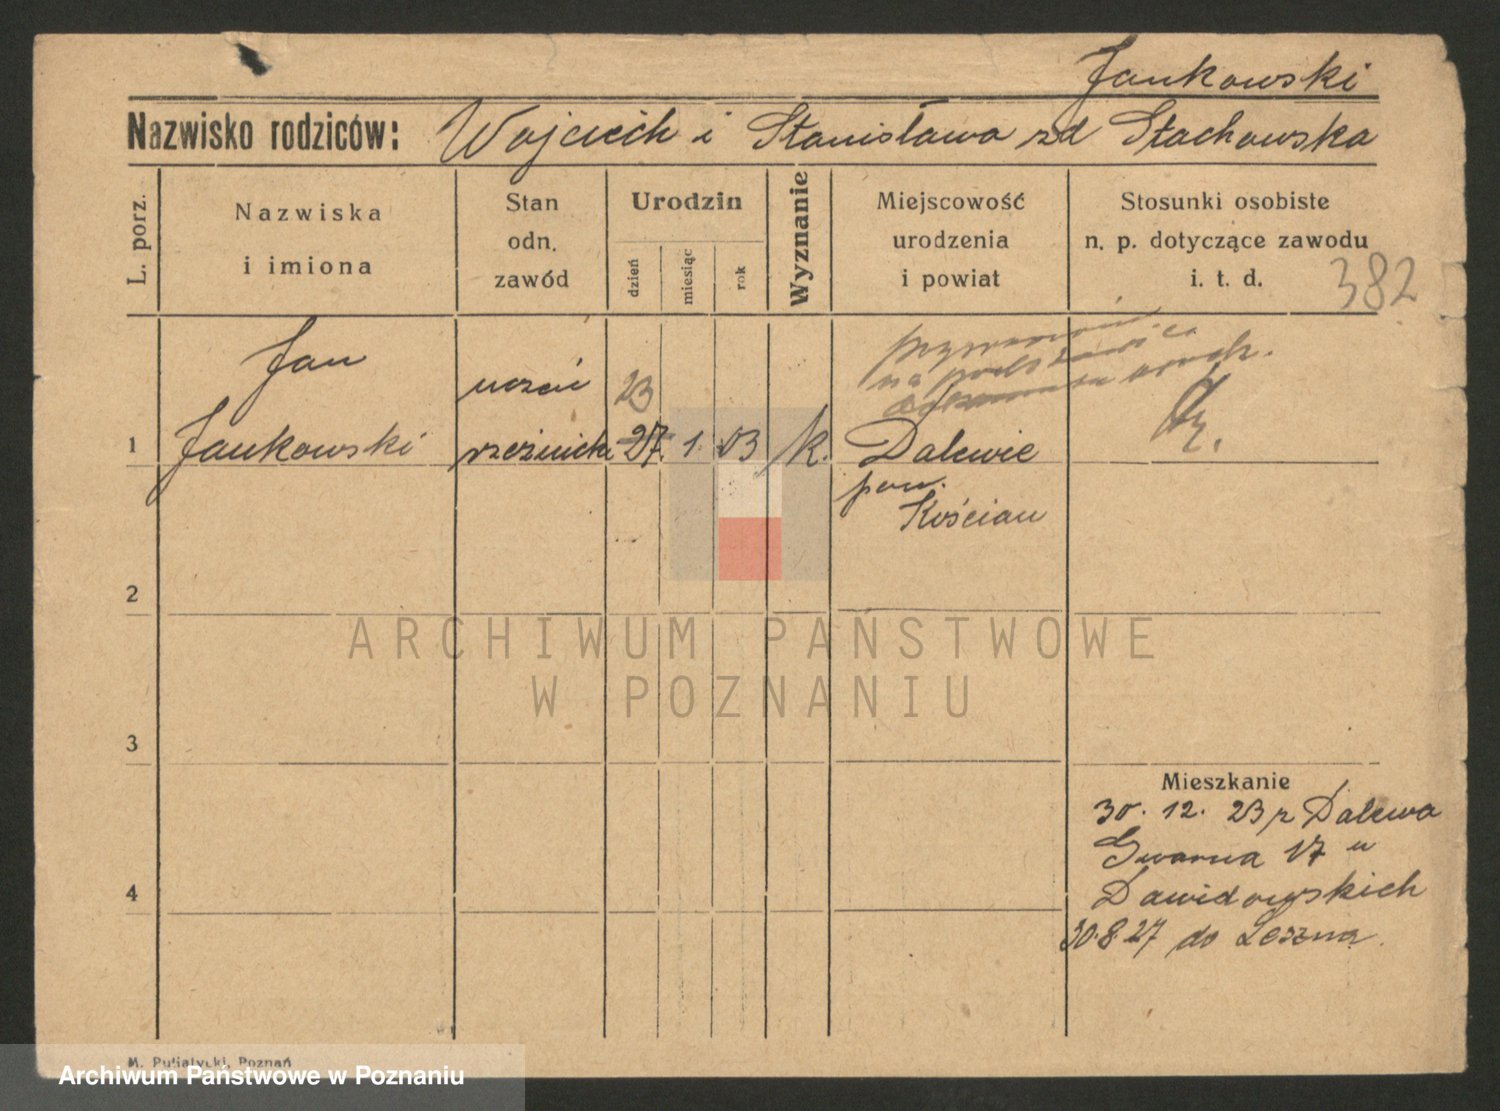 Jankowski
Nazwisko rodziców: Wojciech i Stanisława zd Stachowska
L. porz.
Nazwiska
i imiona
Stan
odn.
zawód
Urodzin
dzień
miesiąc
rok
Wyznanie
Miejscowość
urodzenia
i powiat
Stosunki osobiste
n. p. dotyczące zawodu
i. t. d.
382
na podstawie
urodz.
Jan
uczeń 23
1 Jankowski rzeźnicki 27. 1. 03 k. Dalewie
pow.
Kościan
2
ARCHIWUM PAŃSTWOWE
W POZNANIU
3
Mieszkanie
30. 12. 23 z Dalewa
Gwarna 17 u
4
Dawidowskich
30.8.27 do Leszna.
M. Putiatycki, Poznań
Archiwum Państwowe w Poznaniu